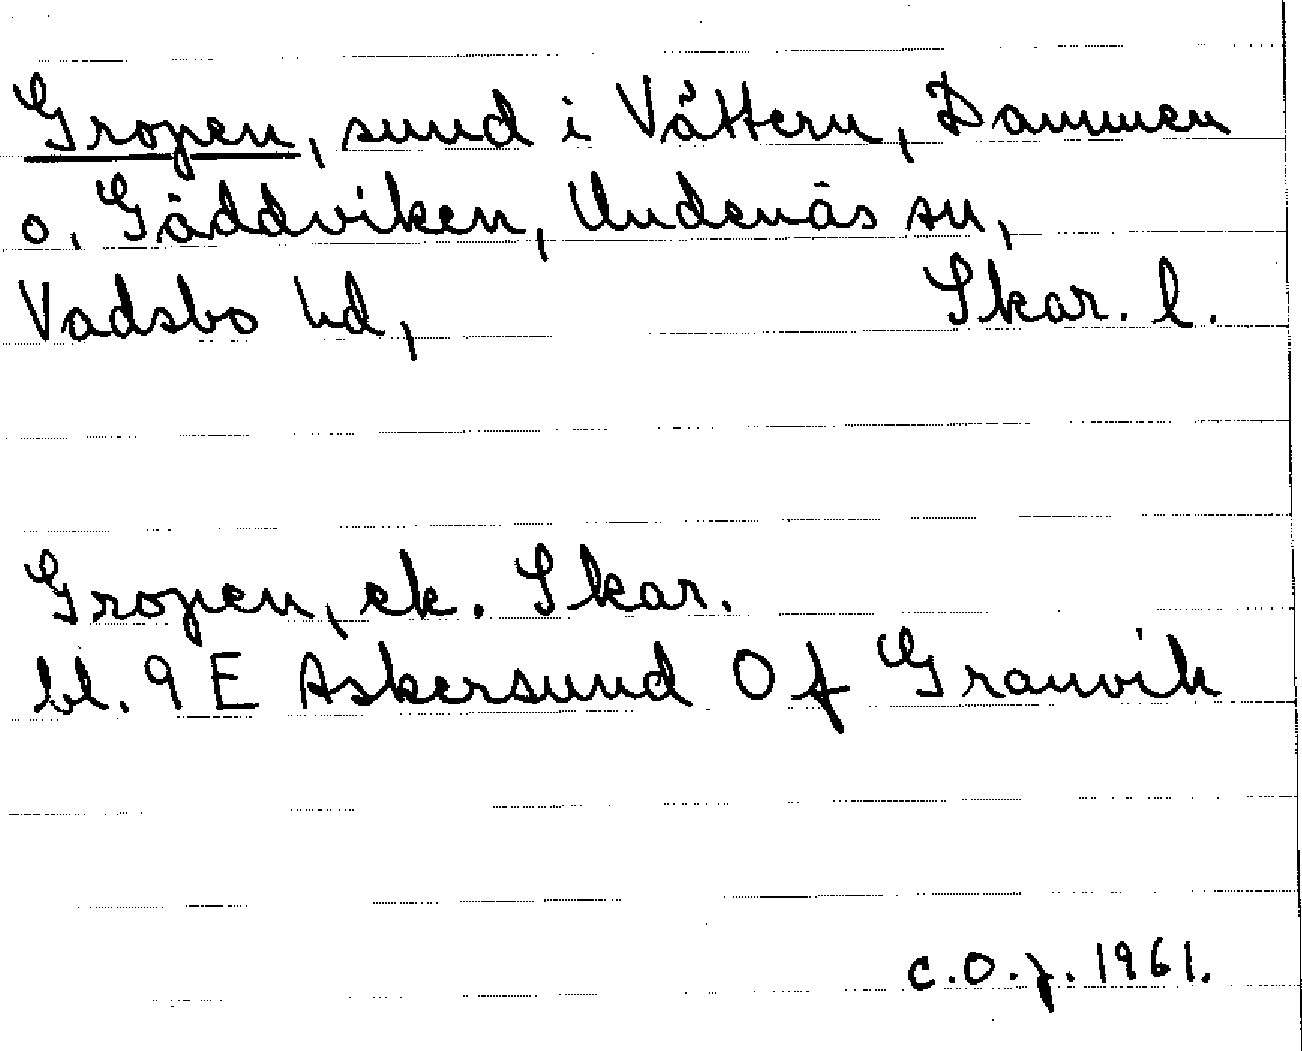 Gropen, sund i Vättern, Dammen
o. Gäddviken, Undenäs sn,
Vadsbo hd, Skar. l.
Gropen, ek. Skar.
bl. 9 E Askersund 0 f Granvik
C.O.f. 1961.